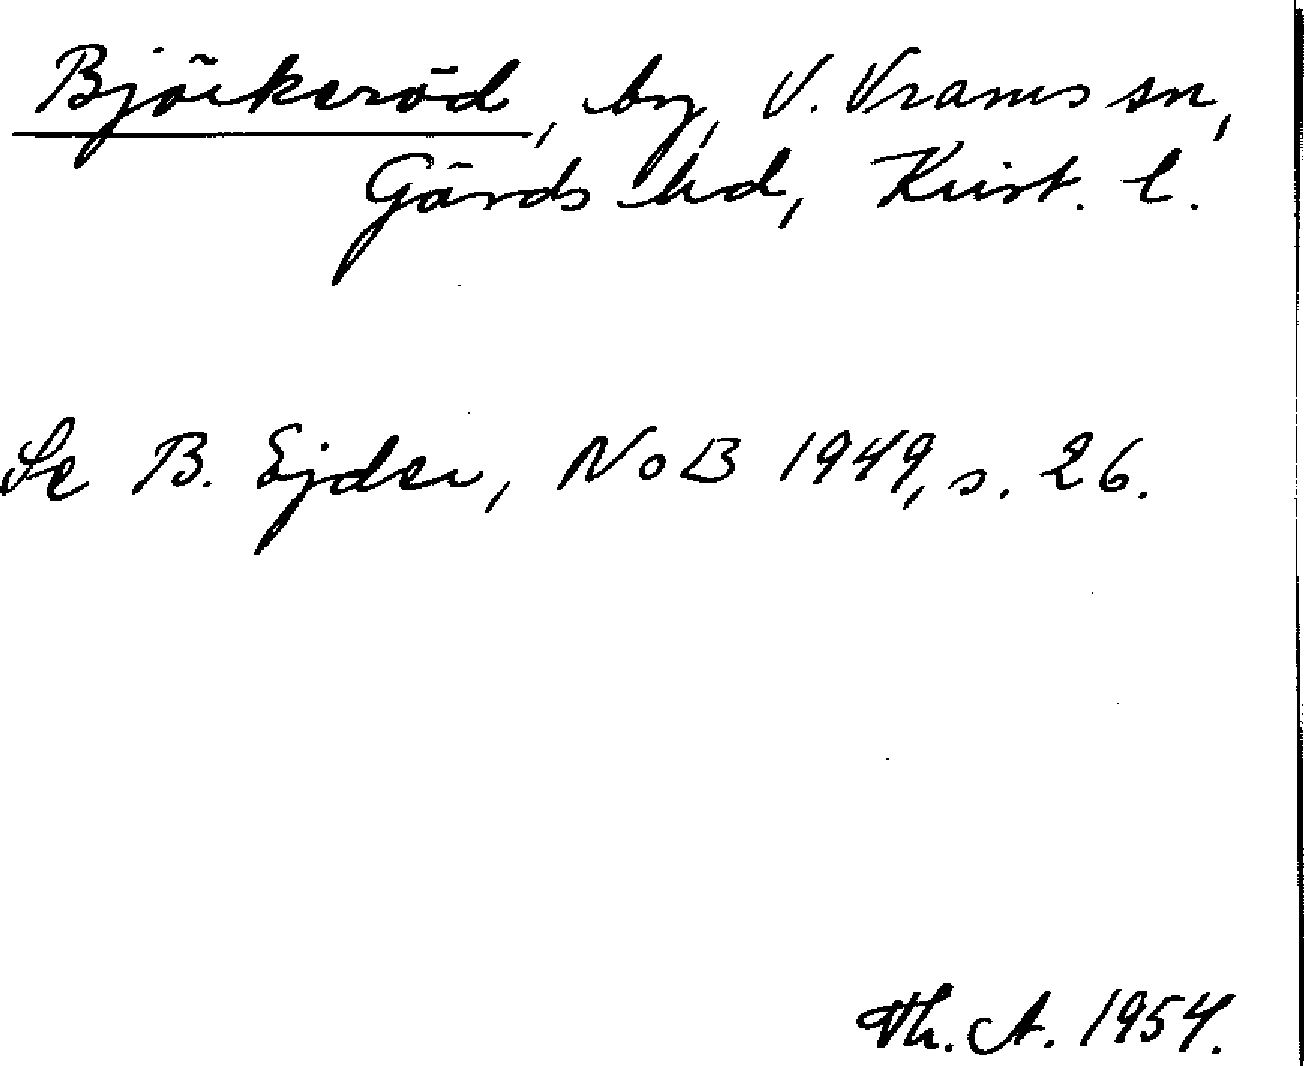 Björkeröd, by, V. Vrams sn,
Gärds hd, Krist. l.
Se B. Ejder, NoB 1949, s. 26.
Th. A. 1954.